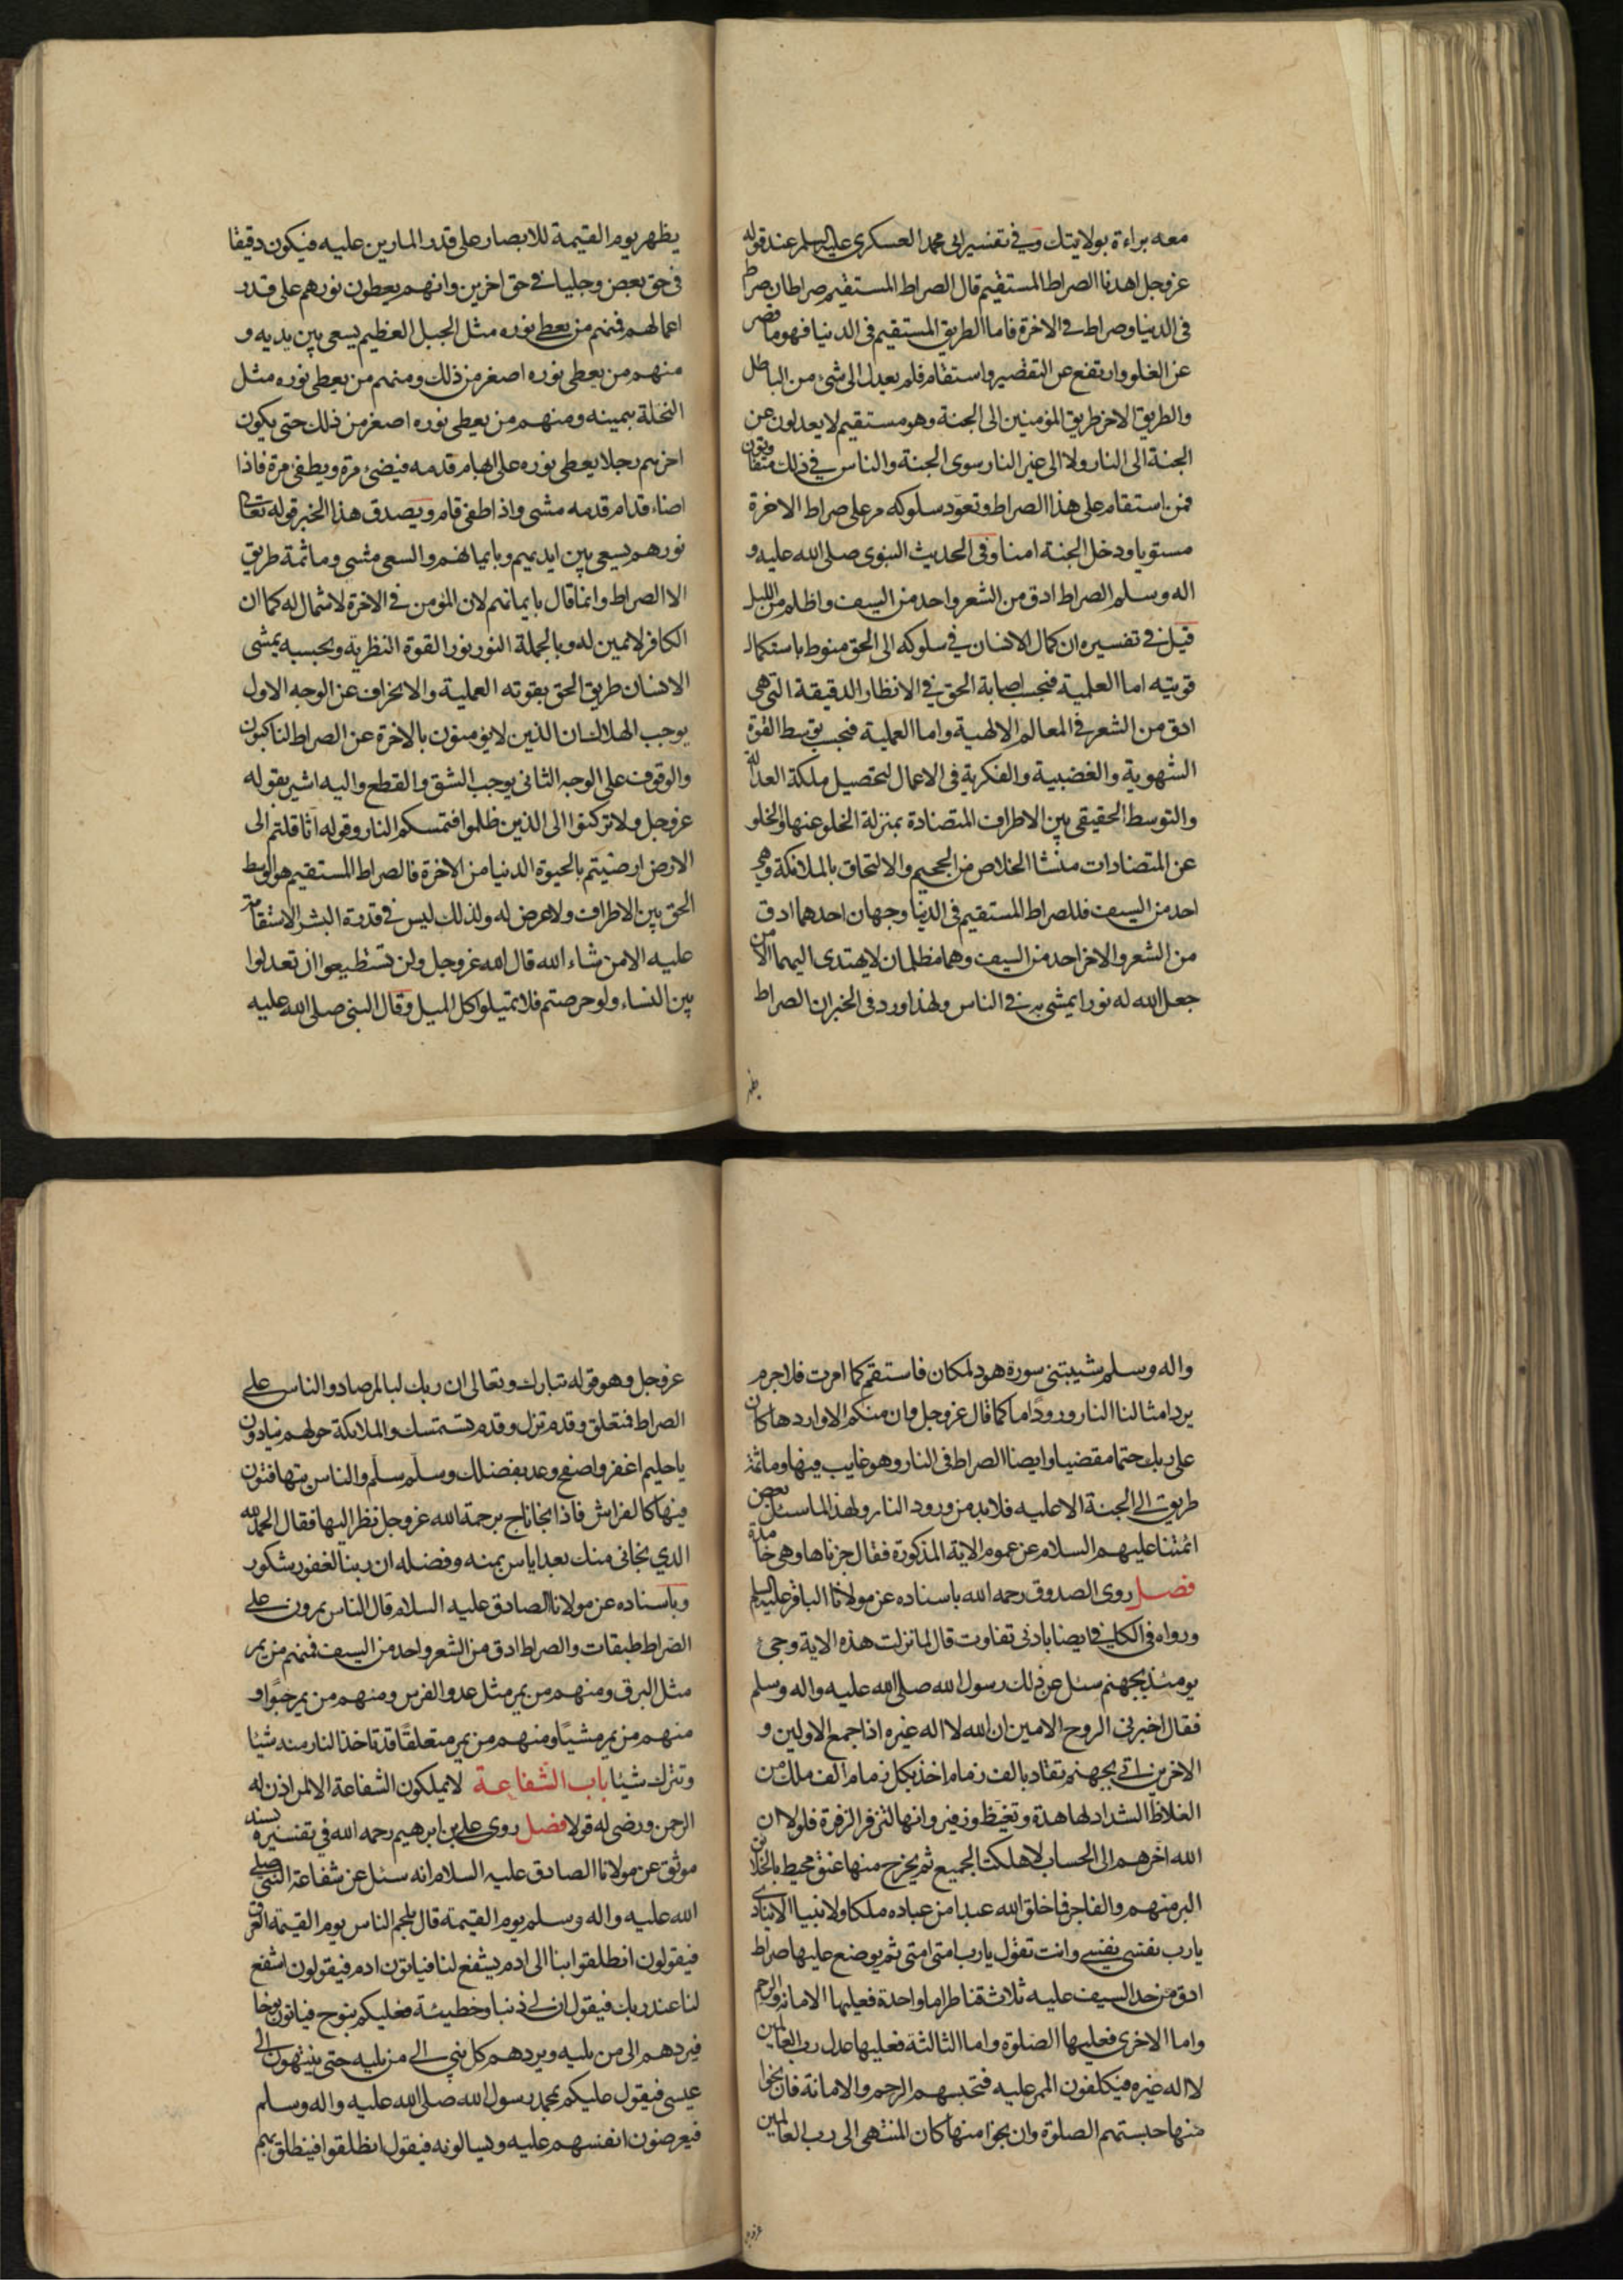 معه براءة بولايتك وفي تفسير ابي محمد العسكري عليه السلم عند قوله
عز وجل اهدنا الصراط المستقيم قال الصراط المستقيم صراطان صراط
في الدنيا وصراط في الاخرة فاما الطريق المستقيم في الدنيا فهو ما قصر
عن الغلو وارتفع عن التقصير واستقام فلم يعدل الى شئ من الباطل
والطريق الاخر طريق المؤمنين الى الجنة وهو مستقيم لا يعدلون عن
الجنة الى النار ولا الى غير النار سوى الجنة والناس في ذلك متفاوتون
فمن استقام على هذا الصراط وتعود سلوكه مر على صراط الاخرة
مستويا ودخل الجنة امنا وفي الحديث النبوى صلى الله عليه و
اله وسلم الصراط ادق من الشعر واحد من السيف واظلم من الليل
قيل في تفسيره ان كمال الانسان في سلوكه الى الحق منوط باستكمال
قوتيه اما العلمية فبحسب اصابة الحق في الانظار الدقيقة التي هي
ادق من الشعر في المعالم الالهية واما العملية فبحسب توسط القوة
الشهوية والغضبية والفكرية في الاعمال لتحصيل ملكة العدالة
والتوسط الحقيقي بين الاطراف المتضادة بمنزلة الخلو عنها والخلو
عن المتضادات منشا الخلاص من الجحيم والالتحاق بالملائكة وهي
احد من السيف فللصراط المستقيم في الدنيا وجهان احدهما ادق
من الشعر والاخر احد من السيف وهما مظلمان لا يهتدى اليهما الا من
جعل الله له نورا يمشي به في الناس ولهذا ورد في الخبر ان الصراط
يظهر
يظهر يوم القيمة للابصار على قدر المارين عليه فيكون دقيقا
في حق بعض وجليا في حق اخرين وانهم يعطون نورهم على قدر
اعمالهم فمنهم من يعطى نوره مثل الجبل العظيم يسعى بين يديه و
منهم من يعطى نوره اصغر من ذلك ومنهم من يعطى نوره مثل
النخلة بيمينه ومنهم من يعطى نوره اصغر من ذلك حتى يكون
اخرهم رجلا يعطى نوره على ابهام قدمه فيضئ مرة ويطفئ مرة فاذا
اضاء قدام قدمه مشى واذا طفئ قام ويصدق هذا الخبر قوله تعالى
نورهم يسعى بين ايديهم وبايمانهم والسعى مشى وما ثمة طريق
الا الصراط وانما قال بايمانهم لان المؤمن في الاخرة لا شمال له كما ان
الكافر لا يمين له وبالجملة النور نور القوة النظرية وبحسبه يمشى
الانسان طريق الحق بقوته العملية والانحراف عن الوجه الاول
يوجب الهلاك ان الذين لا يؤمنون بالاخرة عن الصراط لناكبون
والوقوف على الوجه الثاني يوجب الشق والقطع واليه اشير بقوله
عز وجل ولا تركنوا الى الذين ظلموا فتمسكم النار وقوله اثاقلتم الى
الارض ارضيتم بالحيوة الدنيا من الاخرة فالصراط المستقيم هو الوسط
الحق بين الاطراف ولا عرض له ولذلك ليس في قدرة البشر الاستقامة
عليه الا من شاء الله قال الله عز وجل ولن تستطيعوا ان تعدلوا
بين النساء ولو حرصتم فلا تميلوا كل الميل وقال النبي صلى الله عليه
واله وسلم شيبتني سورة هود لمكان فاستقم كما امرت فلا جرم
يرد امثالنا النار ورودًا ما كما قال عز وجل وان منكم الا واردها كان
على ربك حتما مقضيا وايضا الصراط في النار وهو غايب فيها وما ثمة
طريق الى الجنة الا عليه فلا بد من ورود النار ولهذا لما سئل بعض
ائمتنا عليهم السلام عن عموم الاية المذكورة فقال جزناها وهي خامدة
فصل روى الصدوق رحمه الله باسناده عن مولانا الباقر عليه السلم
ورواه في الكافي ايضا بادنى تفاوت قال لما نزلت هذه الاية وجئ
يومئذ بجهنم سئل عن ذلك رسول الله صلى الله عليه واله وسلم
فقال اخبرني الروح الامين ان الله لا اله غيره اذا جمع الاولين و
الاخرين اتي بجهنم تقاد بالف زمام اخذ بكل زمام الف ملك من
الغلاظ الشداد لها هدة وتغيظ وزفير وانها لتزفر الزفرة فلولا ان
الله اخرهم الى الحساب لاهلكت الجميع ثم يخرج منها عنق محيط بالخلائق
البر منهم والفاجر فما خلق الله عبدا من عباده ملكا ولا نبيا الا ينادى
يا رب نفسي نفسي وانت تقول يا رب امتي امتي ثم يوضع عليها صراط
ادق من حد السيف عليه ثلاث قناطر اما واحدة فعليها الامانة والرحم
واما الاخرى فعليها الصلوة واما الثالثة فعليها عدل رب العالمين
لا اله غيره فيكلفون الممر عليه فتحبسهم الرحم والامانة فان نجوا
منها حبستهم الصلوة وان نجوا منها كان المنتهى الى رب العالمين
عز وجل
عز وجل وهو قوله تبارك وتعالى ان ربك لبالمرصاد والناس على
الصراط فمتعلق وقدم تزل وقدم تستمسك والملائكة حولهم ينادون
يا حليم اغفر واصفح وعد بفضلك وسلم سلم والناس يتهافتون
فيها كالفراش فاذا نجا ناج برحمة الله عز وجل نظر اليها فقال الحمد لله
الذي نجاني منك بعد اياس بمنه وفضله ان ربنا لغفور شكور
وباسناده عن مولانا الصادق عليه السلام قال الناس يمرون على
الصراط طبقات والصراط ادق من الشعر واحد من السيف فمنهم من يمر
مثل البرق ومنهم من يمر مثل عدو الفرس ومنهم من يمر حبوًا و
منهم من يمر مشيًا ومنهم من يمر متعلقًا قد تاخذ النار منه شيئا
وتترك شيئا باب الشفاعة لا يملكون الشفاعة الا لمن اذن له
الرحمن ورضى له قولا فصل روى علي بن ابرهيم رحمه الله في تفسيره بسند
موثق عن مولانا الصادق عليه السلام انه سئل عن شفاعة النبي صلى
الله عليه واله وسلم يوم القيمة قال يلجم الناس يوم القيمة العرق
فيقولون انطلقوا بنا الى ادم يشفع لنا فياتون ادم فيقولون اشفع
لنا عند ربك فيقول ان لي ذنبا وخطيئة فعليكم بنوح فياتون نوحا
فيردهم الى من يليه ويردهم كل نبي الى من يليه حتى ينتهون الى
عيسى فيقول عليكم بمحمد رسول الله صلى الله عليه واله وسلم
فيعرضون انفسهم عليه ويسالونه فيقول انطلقوا فينطلق بهم